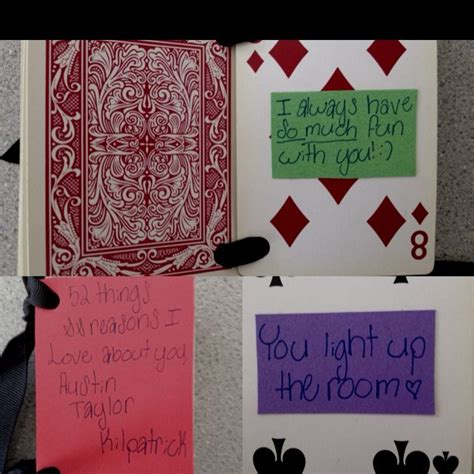 8
I always have
so much fun
with you! :)
8
52 things
reasons I
Love about you,
Austin
Taylor
Kilpatrick
You light up
the room ♡